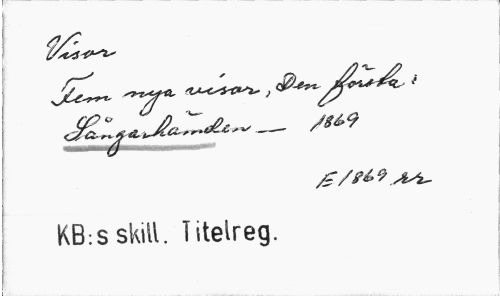 Visor
Fem nya visor, Den första:
Sångarhämden — 1869
E 1869 rr
KB:s skill. Titelreg.